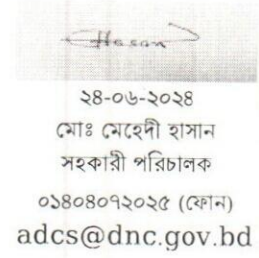 Hasan
২৪-০৬-২০২৪
মোঃ মেহেদী হাসান
সহকারী পরিচালক
০১৪০৪০৭২০২৫ (ফোন)
adcs@dnc.gov.bd